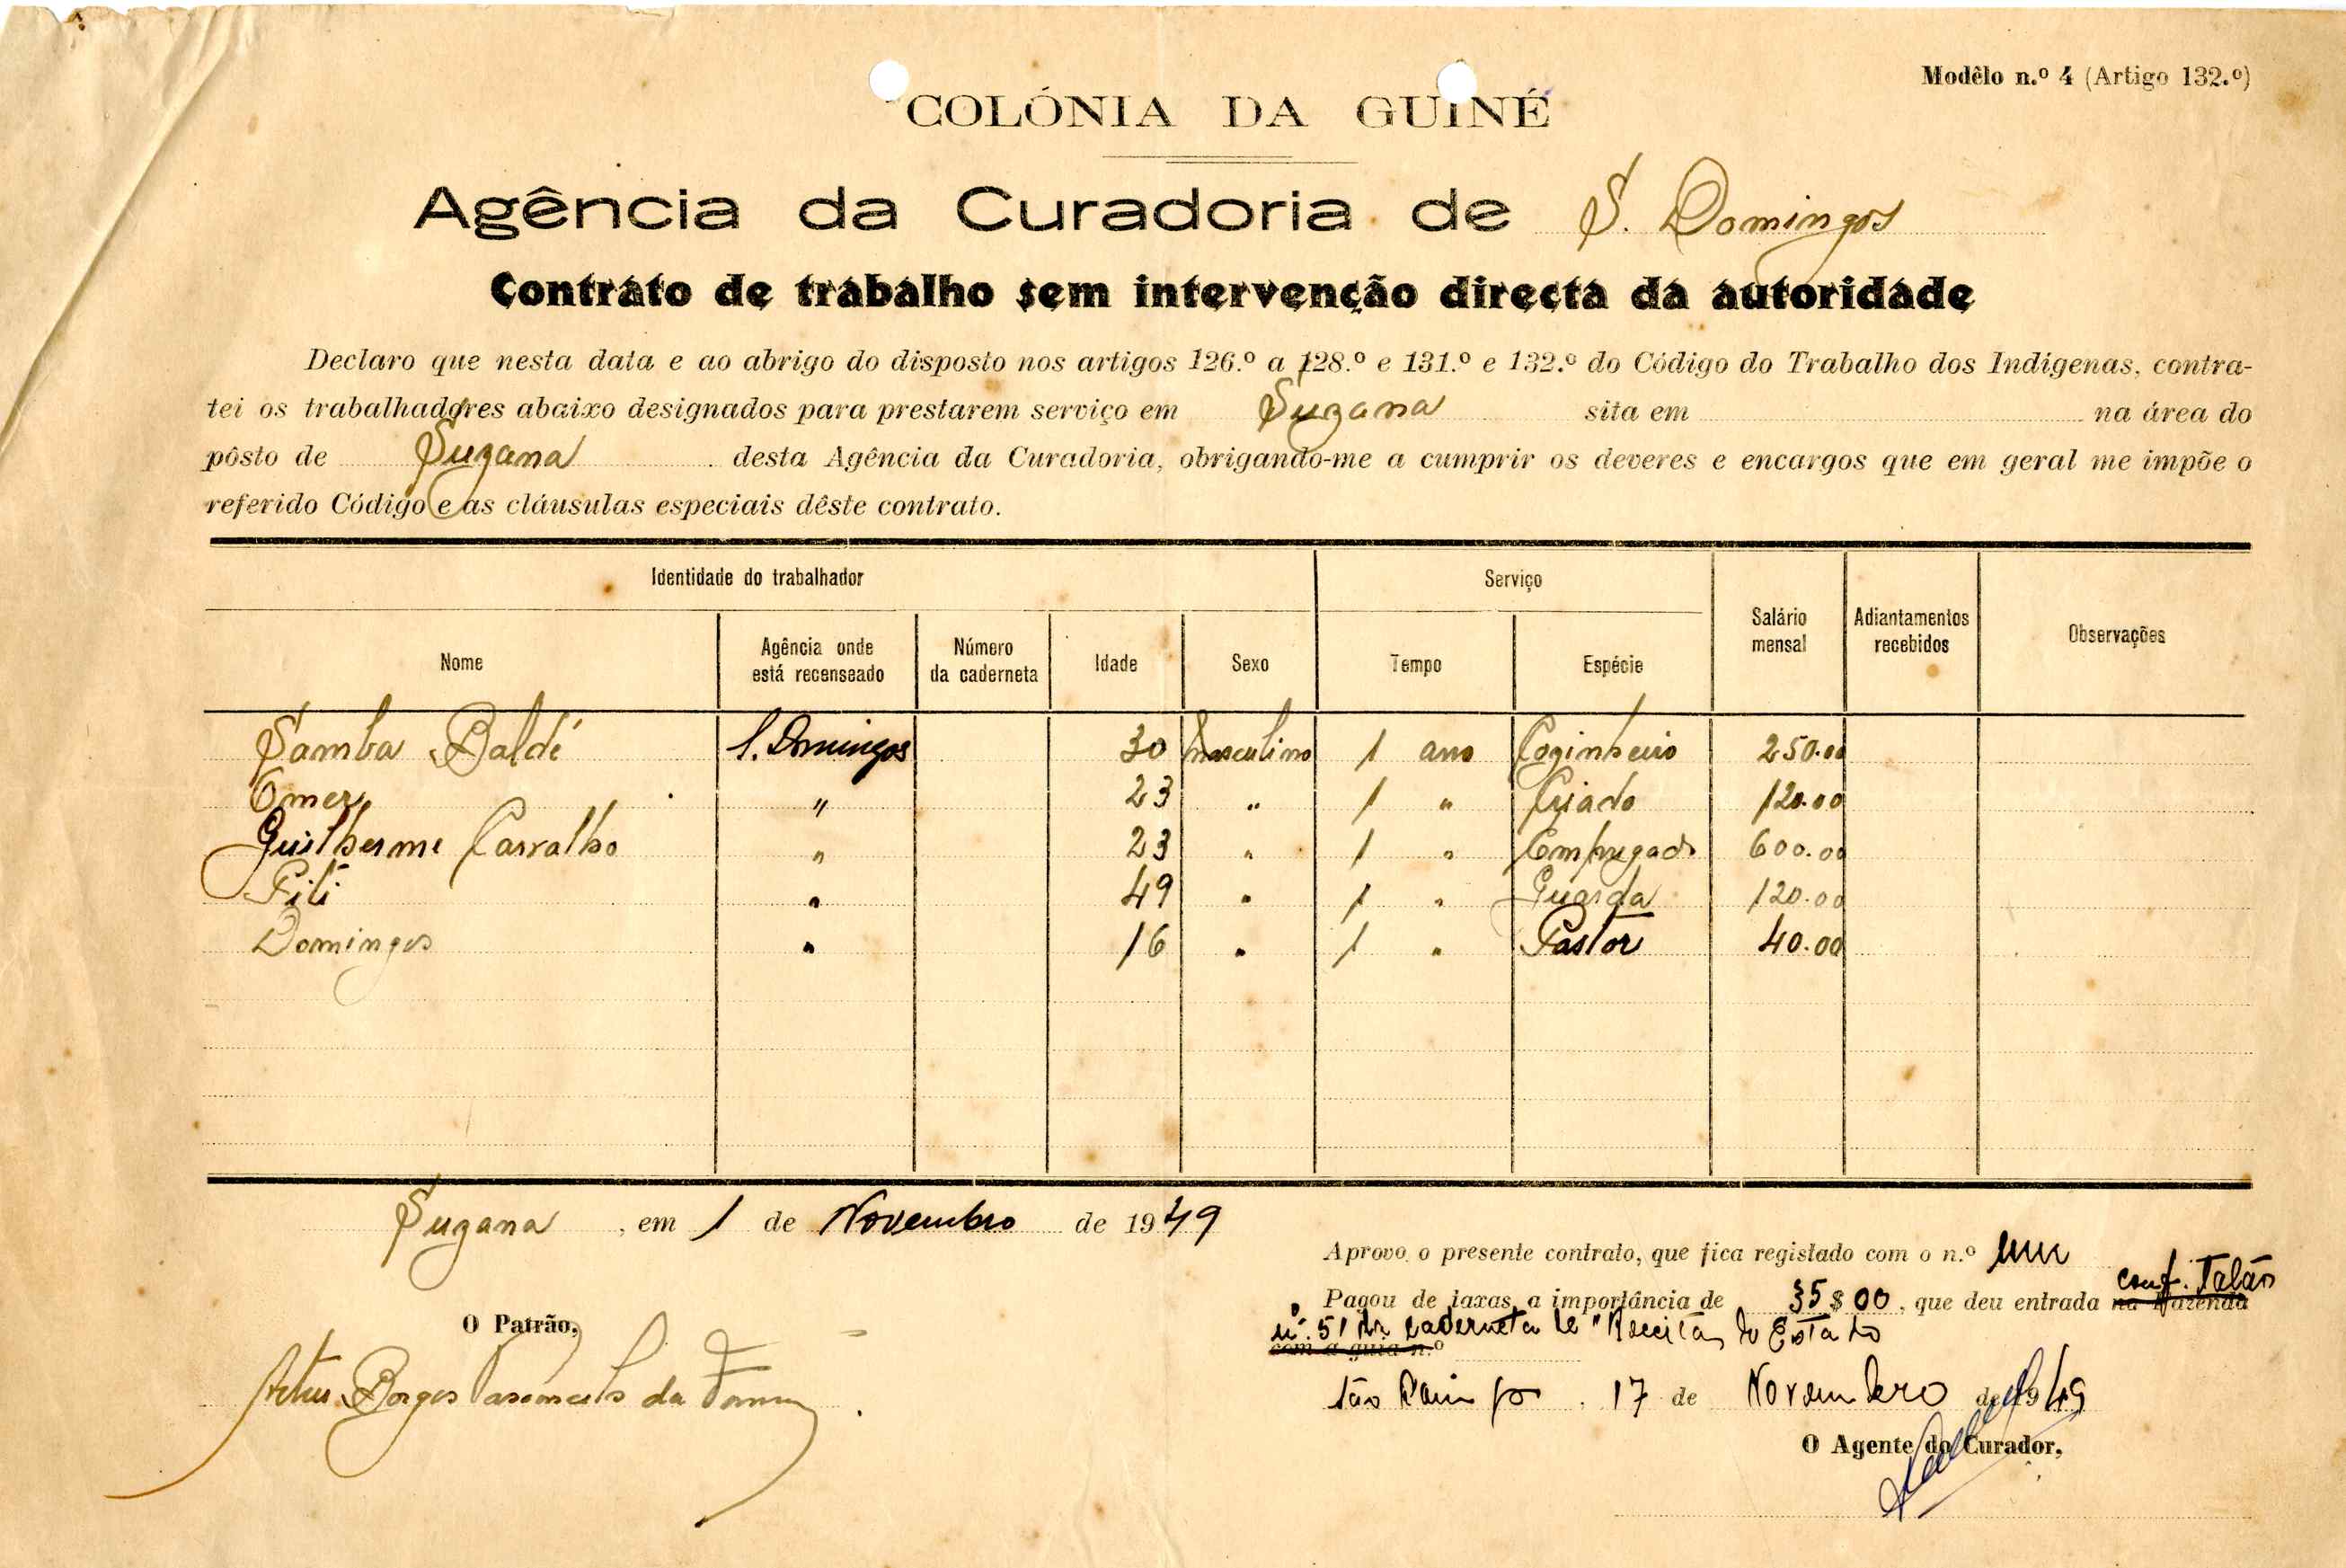 Modêlo n.º 4 (Artigo 132.º)
COLÓNIA DA GUINÉ
Agência da Curadoria de S. Domingos
Contrato de trabalho sem intervenção directa da autoridade
Declaro que nesta data e ao abrigo do disposto nos artigos 126.º a 128.º e 131.º e 132.º do Código do Trabalho dos Indígenas, contra-
tei os trabalhadores abaixo designados para prestarem serviço em Suzana sita em na área do
pôsto de Suzana desta Agência da Curadoria, obrigando-me a cumprir os deveres e encargos que em geral me impõe o
referido Código e as cláusulas especiais dêste contrato.
Identidade do trabalhador Serviço Salário mensal Adiantamentos recebidos Observações
Nome Agência onde está recenseado Número da caderneta Idade Sexo Tempo Espécie
Samba Baldé S. Domingos 30 Masculino 1 ano Coginheiro 250.00
Omer " 23 " 1 " Criado 120.00
Guilherme Carvalho " 23 " 1 " Empregado 600.00
Fili " 49 " 1 " Guarda 120.00
Domingos " 16 " 1 " Pastor 40.00
Suzana, em 1 de Novembro de 1949
Aprovo o presente contrato, que fica registado com o n.º um
conf. Talão
Pagou de taxas a importância de 35$00, que deu entrada na Fazenda
nº. 51 da caderneta de "Receitas do Estado
com a guia n.º
O Patrão,
Borges da
São Domingos, 17 de Novembro de 1949
O Agente do Curador,